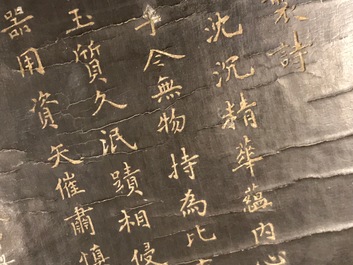 製詩
沈沉精華蘊内心
于今無物持為比
玉質久泯蹟相侵
器用資矢催肅慎